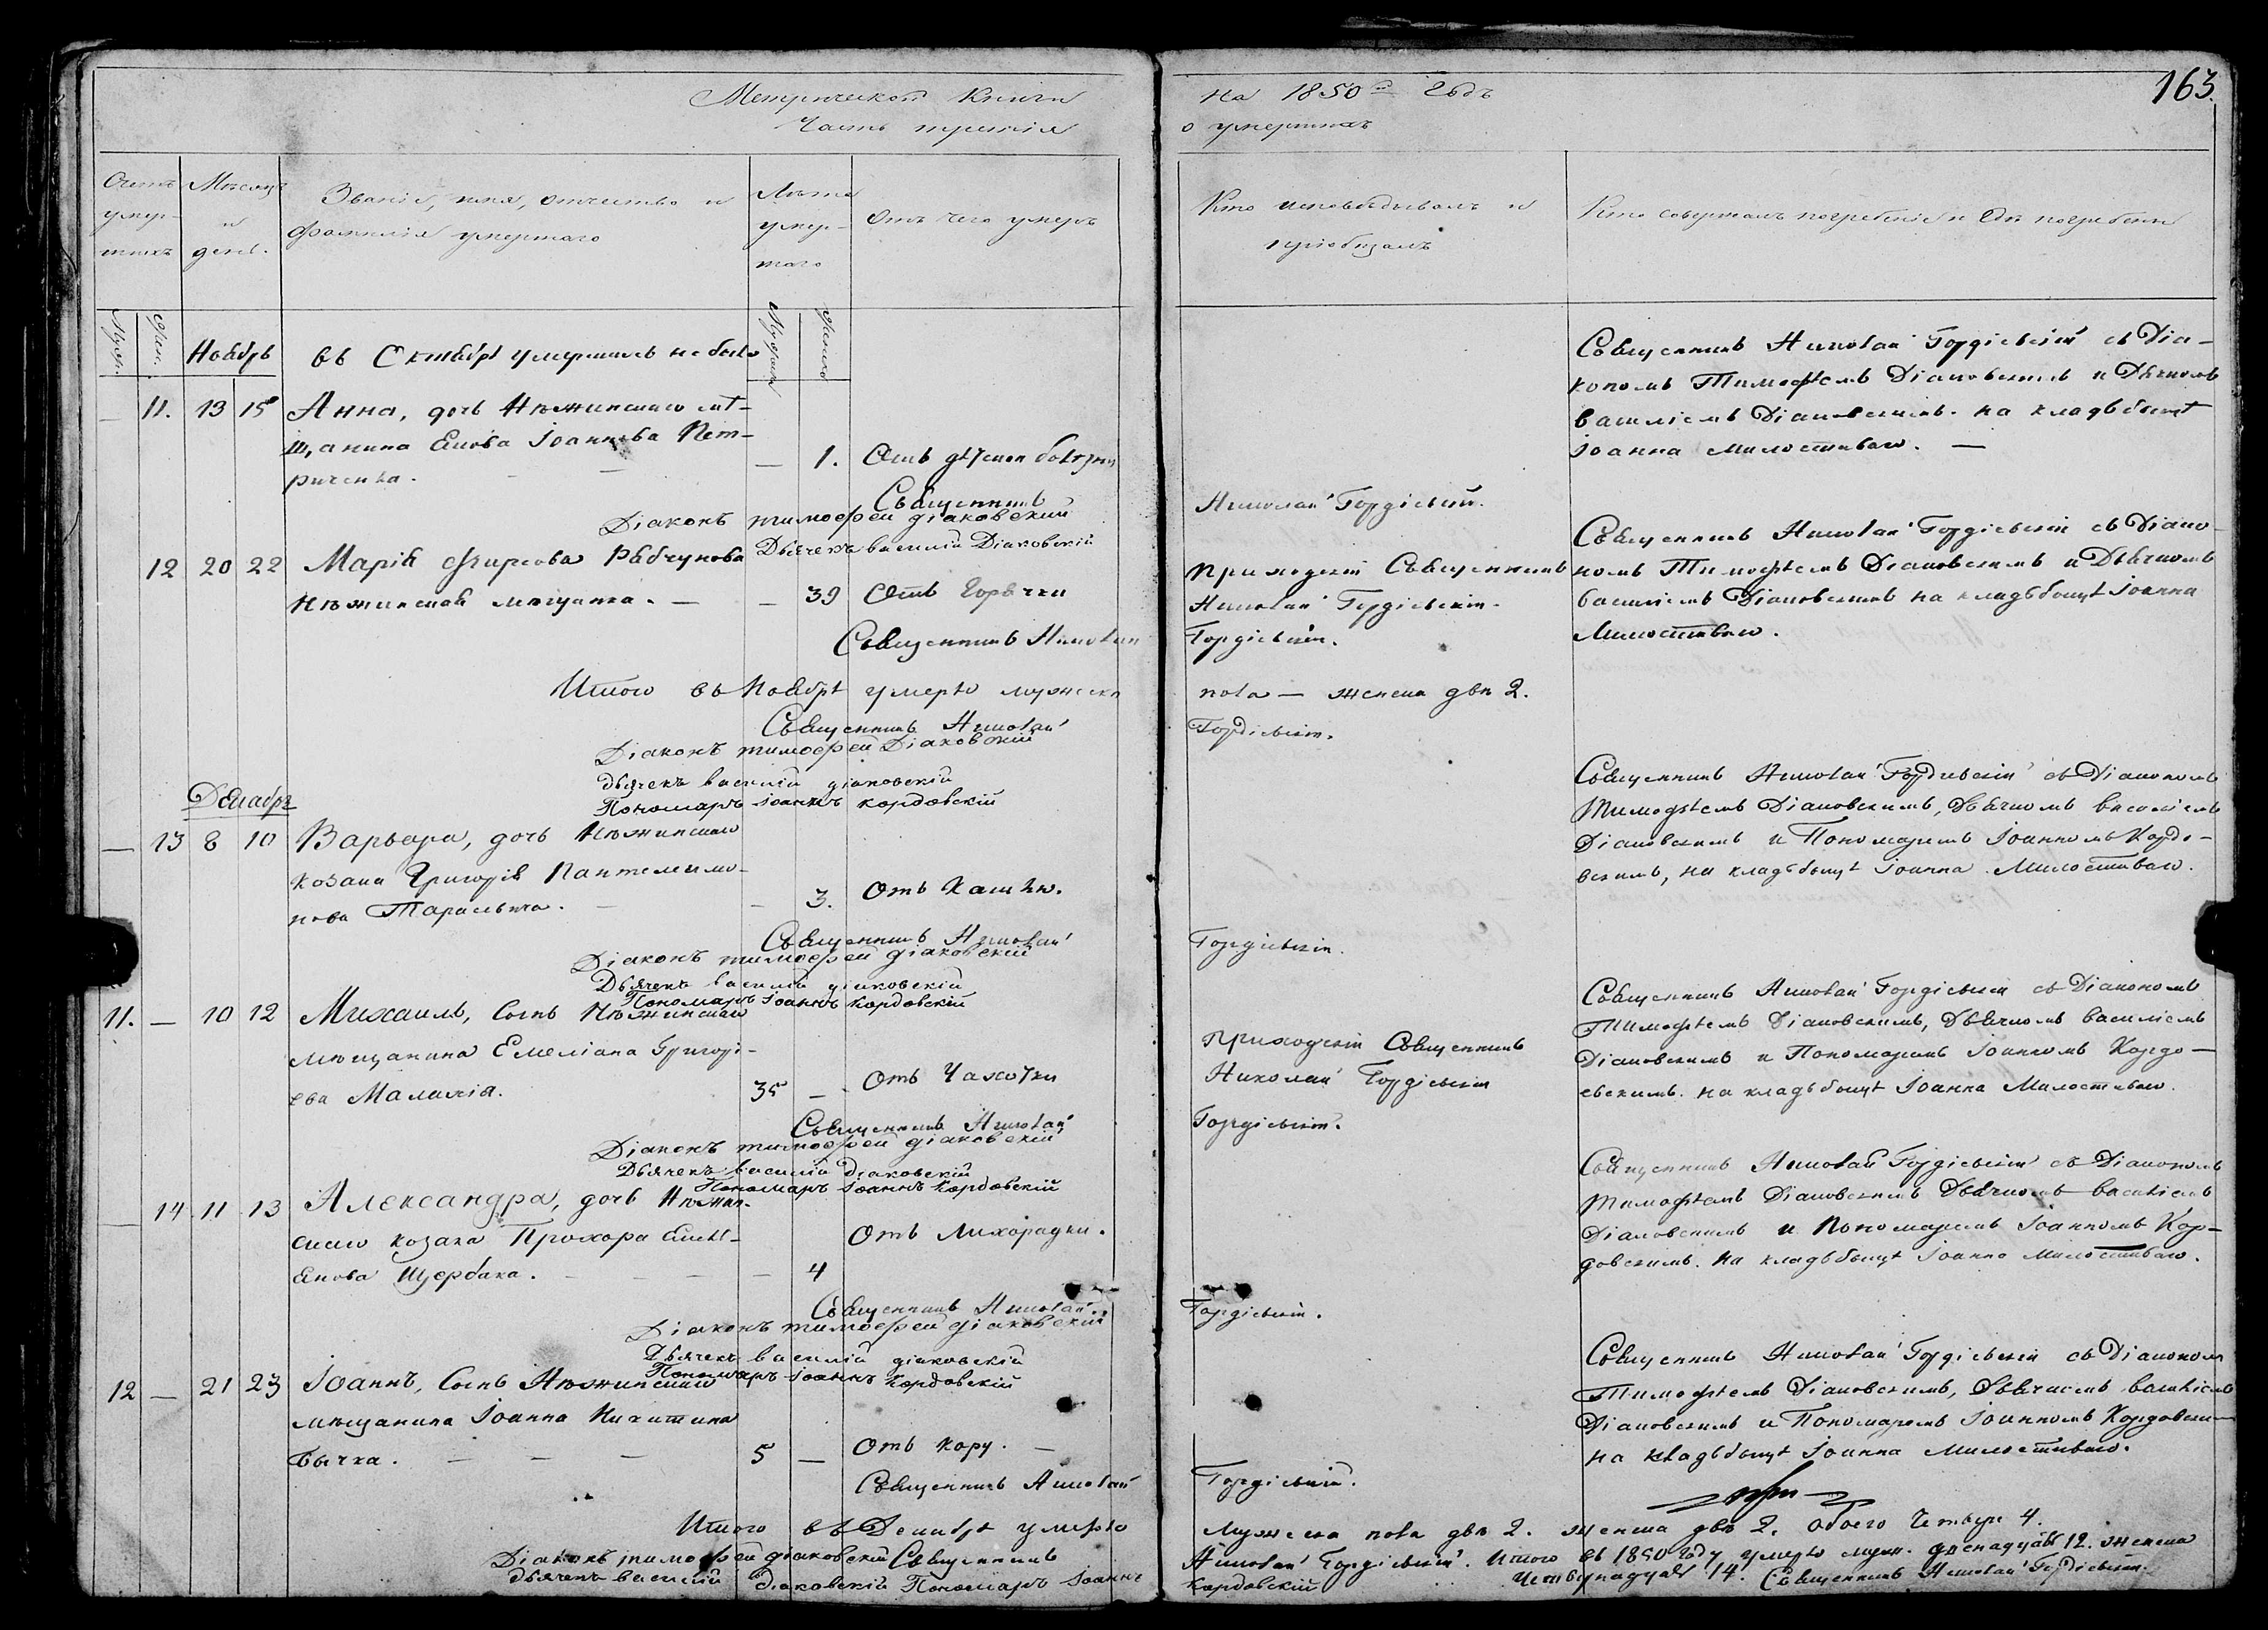 Метрической Книги
Часть третія
Счетъ умер-шихъ
Мѣсяцъ и день.
Званіе, имя, отчество и фамилія умершаго
Лѣта умер-шаго
Отъ чего умеръ
Муж.
Жен.
Ноябрь
въ Октябрѣ умершихъ не было
Мужеска
Женска
11. 13 15 Анна, дочь Нѣжинскаго мѣ-
щанина Іоаннова Пет-
риченка. — 1. Отъ дѣтской болѣзни
Священникъ
Діаконъ тимофей діаковский
Дьячекъ василій Діаковскій
12 20 22 Марія Фирсова Рабчунова
Нѣжинская мѣщанка. — — 39 Отъ Горячки
Священникъ Николай
Итого въ Ноябрѣ умерло мужеска
Священникъ Николай
Діаконъ тимофей Діаковскій
дьячекъ василій діаковскій
Пономарь іоаннъ кордовскій
Декабрь
— 13 8 10 Варвара, дочь Нѣжинскаго
козака Григорія Пантелеимо-
нова Тарасевича. — — 3. Отъ Кашлю.
Священникъ Николай
Діаконъ тимофей діаковскій
Дьячекъ василій діаковскій
Пономарь іоаннъ кордовскій
11. — 10 12 Михаилъ, Сынъ Нѣжинскаго
мѣщанина Емеліана Григорі-
ева Малахія. 35 — Отъ Чахотки
Священникъ Николай
Діаконъ тимофей діаковскій
Дьячекъ василій діаковскій
Пономарь іоаннъ кордовскій
— 14 11 13 Александра, дочь Нѣжин-
скаго козака Прохора Емелі-
янова Щербака. — — — — 4 Отъ Лихорадки.
Священникъ Николай
Діаконъ тимофей діаковскій
Дьячекъ василій діаковскій
Пономарь іоаннъ кордовскій
12 — 21 23 Іоаннъ, Сынъ Нѣжинскаго
мѣщанина Іоанна Никитина
Бычка. — — — 5 — Отъ кору. —
Священникъ Николай
Итого въ Декабрѣ умерло
Діаконъ тимофей діаковскій Священникъ
дьячекъ василий діаковскій Пономарь іоаннъ
на 1850й Годъ
163.
о умершихъ
Кто исповѣдывалъ и пріобщалъ
Кто совершалъ погребеніе и гдѣ погребены
Священникъ Николай Гордіевскій съ Діа-
кономъ Тимофѣемъ Діаковскимъ и Дьячкомъ
василіемъ Діаковскимъ. на кладьбищѣ
Іоанна милостиваго. —
Николай Гордіевскій.
Священникъ Николай Гордіевскій съ Діако-
Приходскій Священникъ
номъ Тимофѣемъ Діаковскимъ и Дьячкомъ
Николай Гордіевскій.
василіемъ Діаковскимъ на кладьбищѣ Іоанна
Гордіевскій.
Милостиваго.
пола — женска двѣ 2.
Гордіевскій.
Священникъ Николай Гордіевскій съ Діакономъ
Тимофѣемъ Діаковскимъ, Дьячкомъ василіемъ
Діаковскимъ и Пономаремъ Іоанномъ Кордо-
вскимъ, на кладьбищѣ Іоанна Милостиваго.
Гордіевскій.
Священникъ Николай Гордіевскій съ Діакономъ
Тимофѣемъ Діаковскимъ, Дьячкомъ василіемъ
Приходскій Священникъ
Діаковскимъ и Пономаремъ Іоанномъ Кордо-
Николай Гордіевскій
вскимъ. на кладьбищѣ Іоанна Милостиваго.
Гордіевскій.
Священникъ Николай Гордіевскій съ Діакономъ
Тимофѣемъ Діаковскимъ Дьячкомъ василіемъ
Діаковскимъ и Пономаремъ Іоанномъ Кор-
довскимъ. на кладьбищѣ Іоанна милостиваго.
Гордіевскій.
Священникъ Николай Гордіевскій съ Діакономъ
Тимофѣемъ Діаковскимъ, Дьячкомъ василіемъ
Діаковскимъ и Пономаремъ Іоанномъ Кордовски-
на кладьбищѣ Іоанна Милостиваго.
Гордіевскій.
Мужеска пола два 2. женска двѣ 2. обоего Четыре 4.
Николай Гордіевскій. Итого въ 1850 Году умерло муж. двенадцать 12. женска
Кордовскій Четырнадцать 14. Священникъ Николай Гордіевскій.